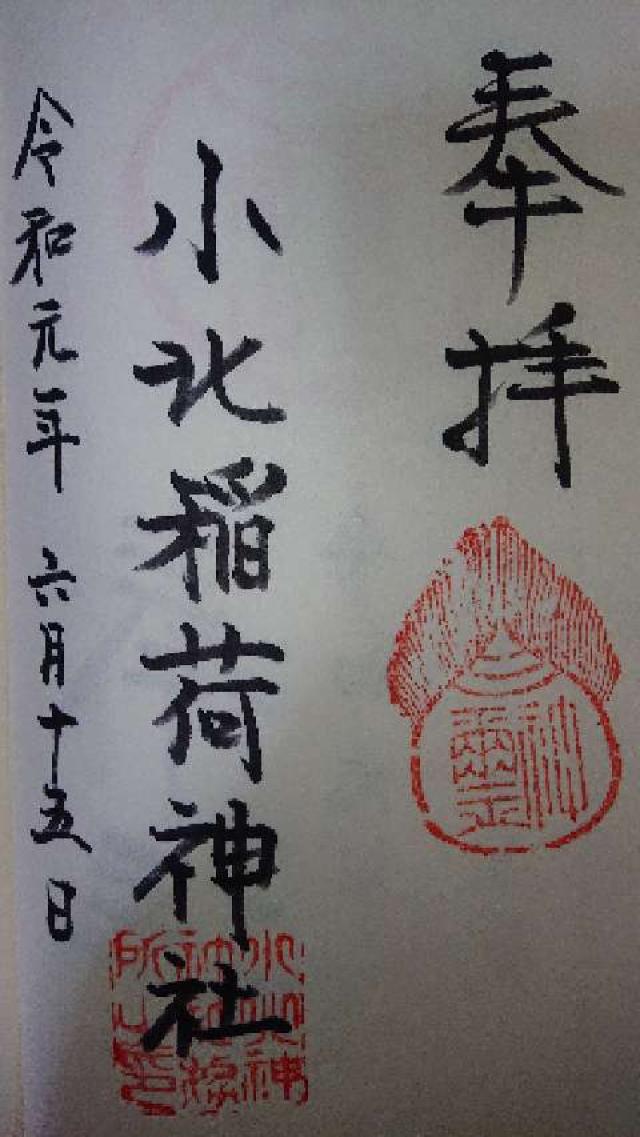 奉拝
小北稲荷神社
令和元年 六月十五日